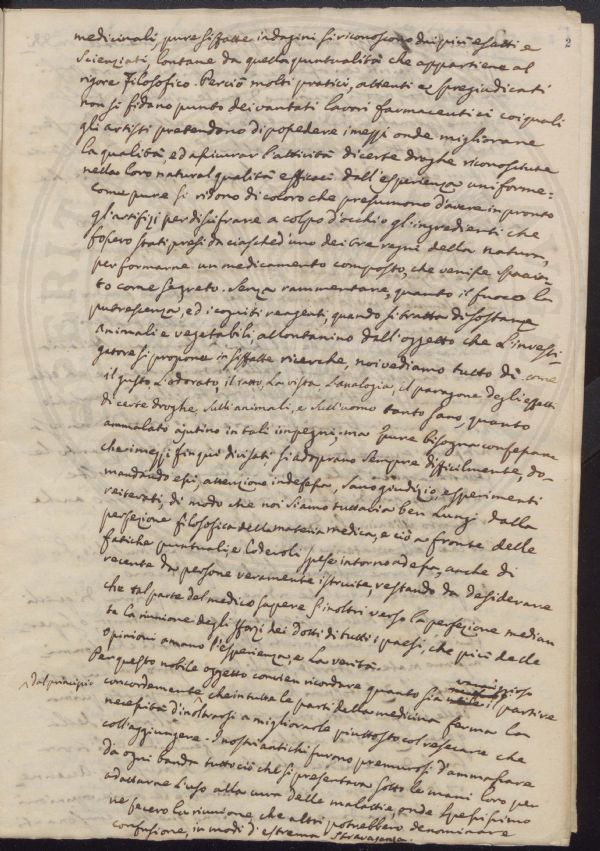 2
medicinali, pure siffatte indagini si riconoscono dai più esatti e
scienziati, lontane da quella puntualità che appartiene al
rigore filosofico. Perciò molti pratici, attenti e spregiudicati
non si fidano punto dei vantati lavori farmaceutici coi quali
gli artisti pretendono di possedere i mezzi onde migliorare
la qualità, ed assicurar l'attività di certe droghe riconosciute
nella loro natural qualità efficaci dall'esperienza uniforme:
Come pure si ridono di coloro che presumono d'avere in pronto
gl'artifizj per discifrare a colpo d'occhio gl'ingredienti che
fossero stati presi da ciasched'uno dei tre regni della natura,
per formarne un medicamento composto, che venisse spaccia
to come segreto. Senza rammentare, quanto il fuoco la
putrescenza, ed i cogniti reagenti, quando si tratta di sostanze
animali e vegetabili allontanino dall'oggetto che l'investi-
gatore si propone in siffatte ricerche, noi vediamo tutto dì come
il gusto, l'odorato, il tatto, la vista, l'analogia, il paragone degli effetti
di certe droghe, sull'animali, e sull'uomo tanto sano, quanto
ammalato ajutino in tali impegni; ma pure bisogna confessare
che i mezzi fin qui divisati, si adoprano sempre difficilmente, do-
mandando essi, attenzione indefessa, sano giudizio, esperimenti
reiterati, di modo che noi siamo tuttavia ben lungi dalla
perfezione filosofica della materia medica, e ciò a fronte delle
fatiche puntuali, e lodevoli spese intorno ad essa, anche di
recente da persone veramente istruite, restando da desiderare
che tal parte del medico sapere s'inoltri verso la perfezione median
te la riunione degli sforzi dei Dotti di tutti i paesi, che più delle
opinioni amano l'esperienza, e la verità.
Per questo nobile oggetto convien ricordare quanto sia vantaggioso
dal principio concordemente, che in tutte le parti della medicina ferma la
necessità d'inoltrarsi a migliorarle piuttosto col resecare che
coll'aggiungere. I nostri antichi furono premurosi d'ammassare
da ogni banda tutto ciò che si presentava sotto le mani loro per
adattarne l'uso alla cura delle malattie, onde spessissimo
ne fecero la riunione che altri potrebbero denominare
confusione, in modi d'estrema stravaganza.